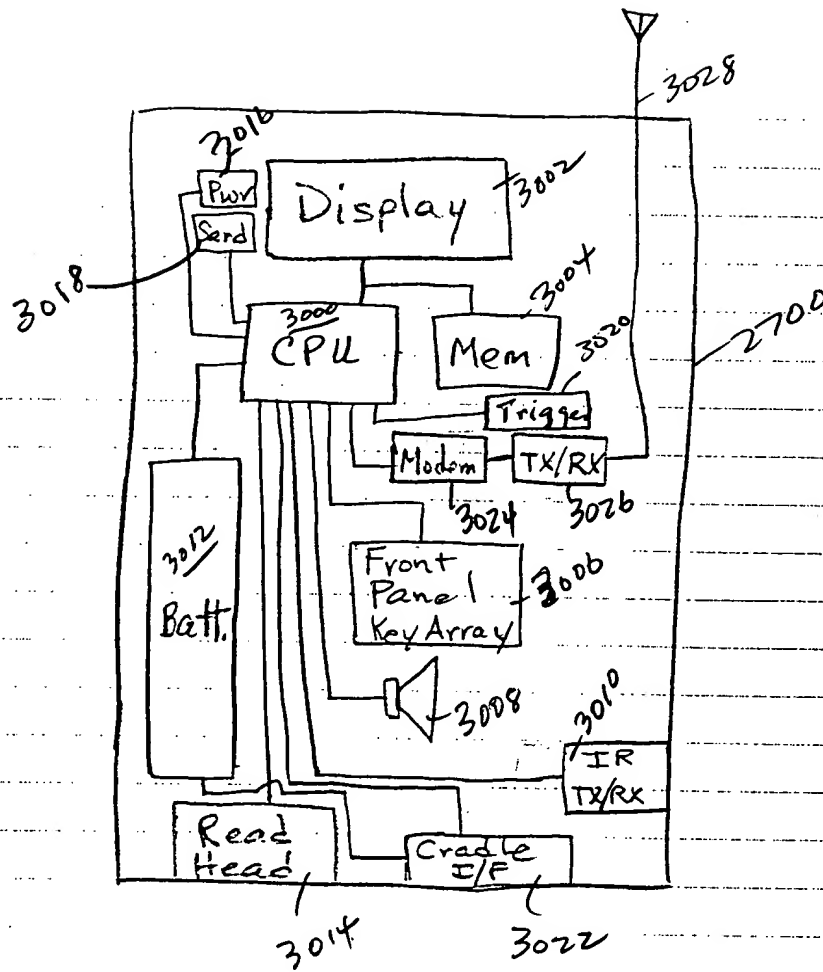 3028
3016
Pwr
Send
3018
Display
3002
3000
CPU
3004
Mem
3020
Trigger
2700
Modem
TX/RX
3024
3026
3012
Batt.
Front
Panel
Key Array
3006
3008
3010
IR
TX/RX
Read
Head
Cradle
I/F
3014
3022